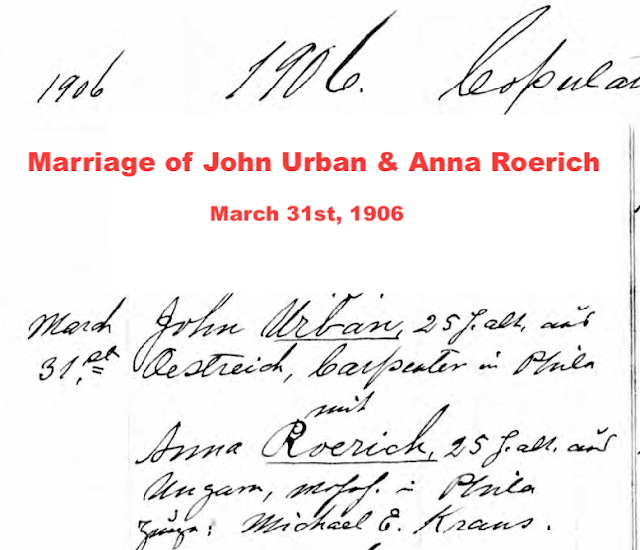 1906 1906. Copula
Marriage of John Urban & Anna Roerich
March 31st, 1906
March John Urban, 25 J. alt, aus
31.st Oestreich, Carpenter in Phila
mit
Anna Roerich, 25 J. alt. aus
Ungarn, in Phila
Zeuge: Michael E. Kraus.